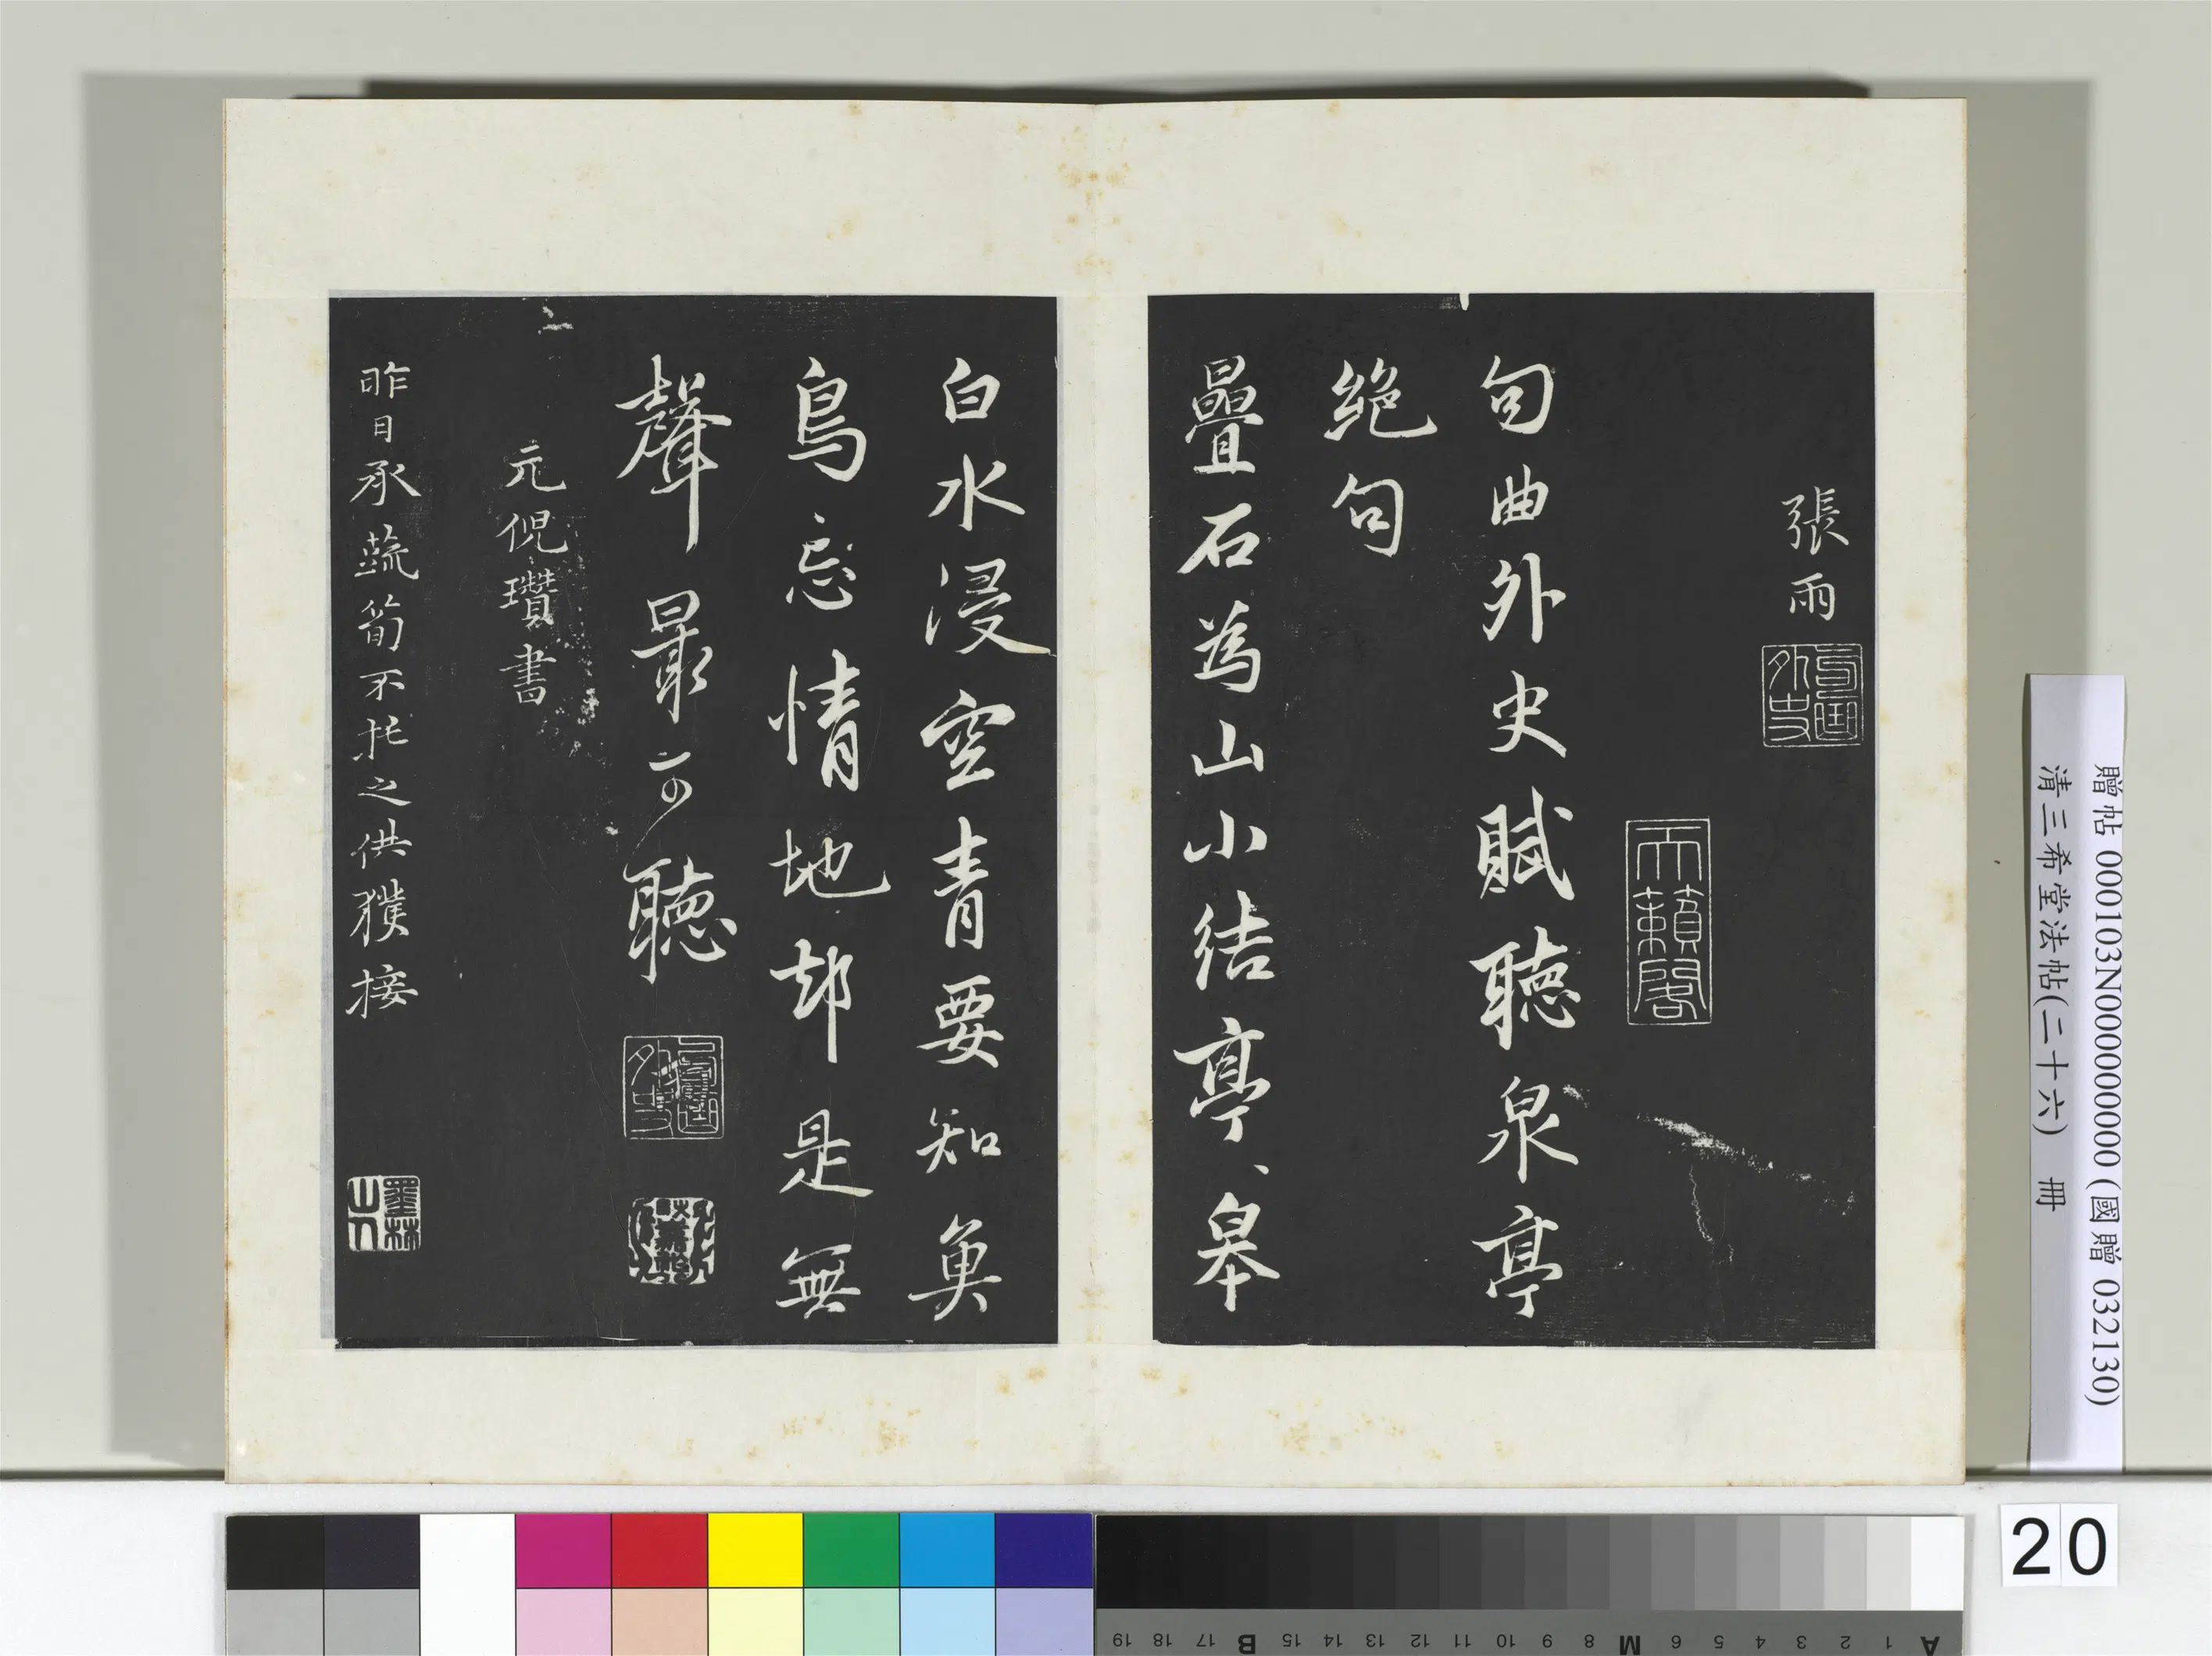 張雨
句曲外史
天籟閣
句曲外史賦聽泉亭
絶句
疊石為山小結亭、皋
白水浸空青要知魚
鳥忘情地却是無
聲最可聽
句曲外史
元倪瓚書
昨日承蔬筍不托之供獲接
墨林山人
贈帖 000103N000000000 (國贈 032130)
清三希堂法帖(二十六) 冊
20
A 1 2 3 4 5 6 M 8 9 10 11 12 13 14 15 B 17 18 19